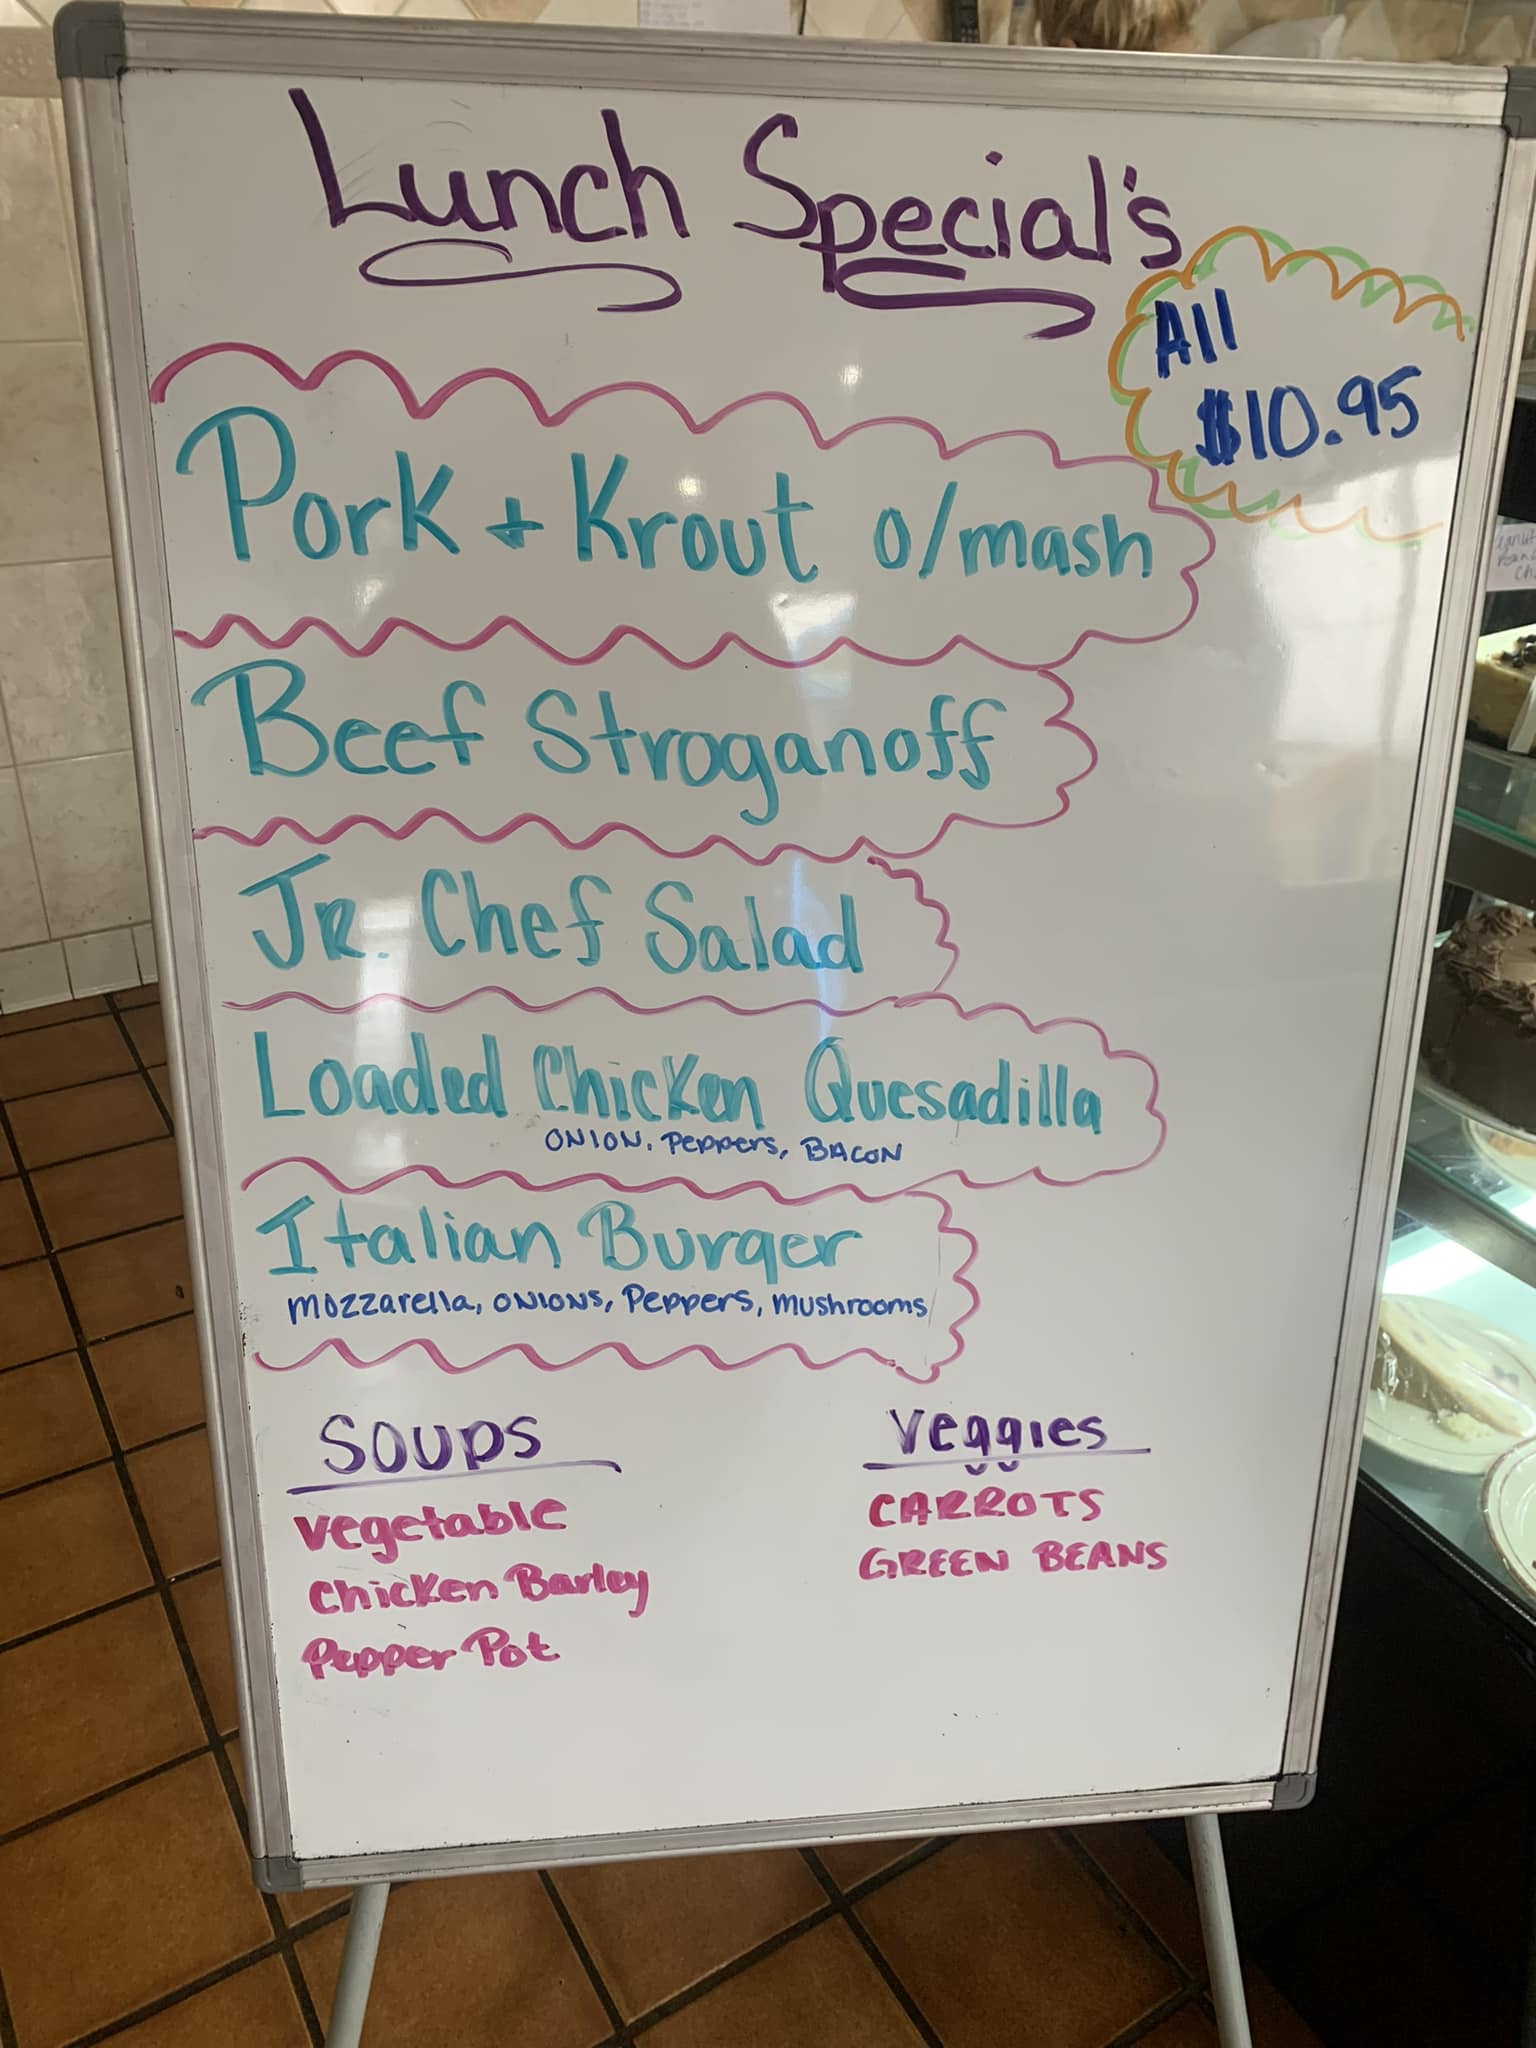 Lunch Special's
All
$10.95
Pork + Krout o/mash
Beef Stroganoff
JR. Chef Salad
Loaded Chicken Quesadilla
ONION, Peppers, BACON
Italian Burger
Mozzarella, ONIONS, Peppers, Mushrooms
SOUPS
Vegetable
Chicken Barley
Pepper Pot
Veggies
CARROTS
GREEN BEANS